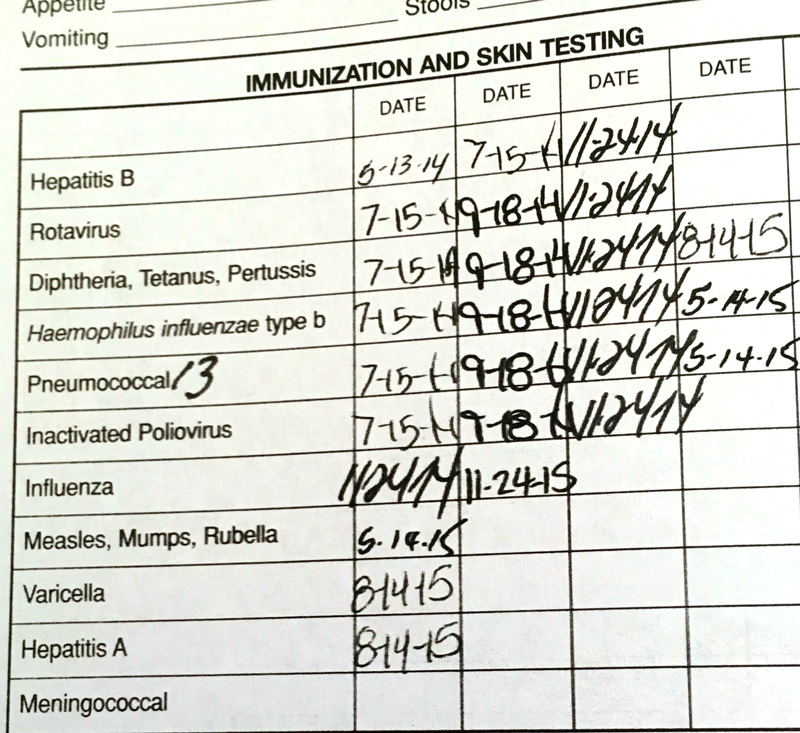 Appetite Stools
Vomiting
IMMUNIZATION AND SKIN TESTING
DATE DATE DATE DATE
Hepatitis B 5-13-14 7-15-14 11-24-14
Rotavirus 7-15-14 9-18-14 11-24-14
Diphtheria, Tetanus, Pertussis 7-15-14 9-18-14 11-24-14 8-14-15
Haemophilus influenzae type b 7-15-14 9-18-14 11-24-14 5-14-15
Pneumococcal 13 7-15-14 9-18-14 11-24-14 5-14-15
Inactivated Poliovirus 7-15-14 9-18-14 11-24-14
Influenza 11-24-14 11-24-15
Measles, Mumps, Rubella 5-14-15
Varicella 8-14-15
Hepatitis A 8-14-15
Meningococcal